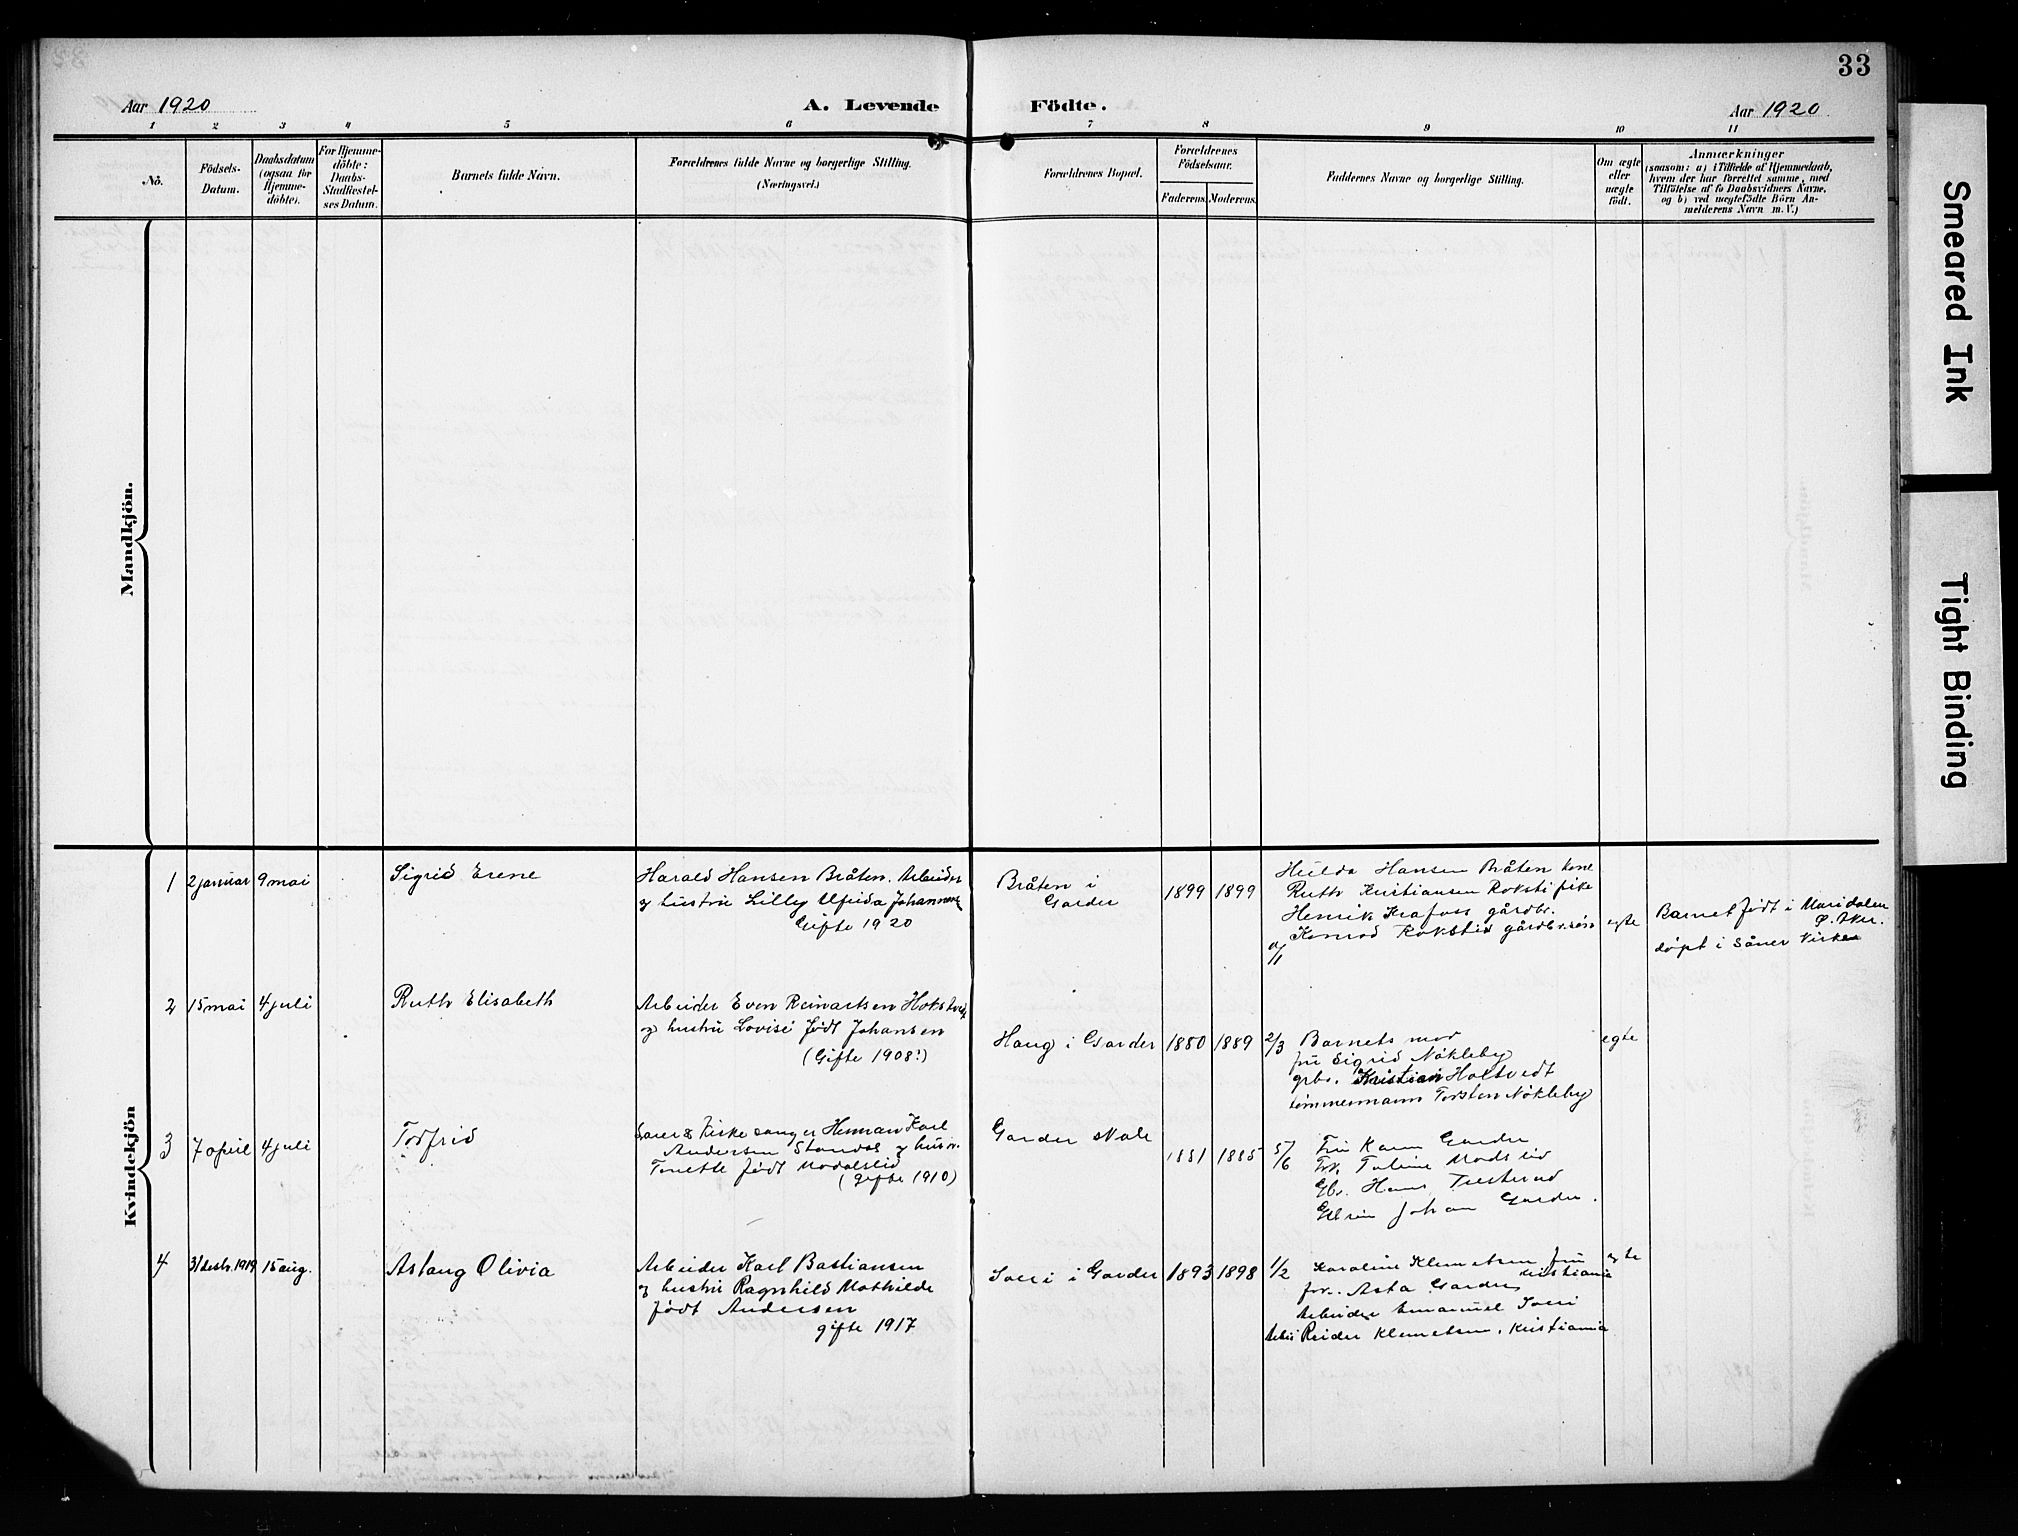 33
Aar 1920
A. Levende Födte.
Aar 1920
1 2 3 4 5 6 7 8 9 10 11
No.
Födsels-
Datum.
Daabsdatum
(ogsaa for
Hjemme-
döbte).
For Hjemme-
döbte:
Daabs-
Stadfæstel-
ses Datum.
Barnets fulde Navn.
Forældrenes fulde Navne og borgerlige Stilling.
(Næringsvei.)
Forældrenes Bopæl.
Forældrenes
Födselsaar.
Faderens. Moderens.
Faddernes Navne og borgerlige Stilling.
Om ægte
eller
uægte
födt.
Anmærkninger
(saasom: a) i Tilfælde af Hjemmedaab,
hvem der har forrettet samme, med
Tilföielse af to Daabsvidners Navne,
og b) ved uægtefödte Börn An-
melderens Navn m. V.)
Mandkjön.
Kvindekjön
1 2 januar 9 mai
Sigrid Erene
Harald Hansen Bråten. Arbeider
og hustru Lilly Alfrida Johannesen
Gifte 1920
Bråten i
Garder
1899 1899
Hulda Hansen Bråten kone
Ruth Kristiansen Roksti pike
Henrik Krafoss gårdbr.
Konrad Rokstid gårdbr.søn
egte
Barnet født i Maridalen
Ø. Aker.
døpt i Såner Kirke
2 15 mai 4 juli
Ruth Elisabeth
Arbeider Even Reinartsen Hokstvedt
og hustru Lovise født Johansen
(Gifte 1908!)
Haug i Garder
1880 1889
2/3 Barnets mor
fru Sigrid Nökleby
grbr. Kristian Holtvedt
tømmermann Torsten Nökleby
egte
3 7 april 4 juli
Torfrid
Lærer & Kirkesanger Herman Karl
Andersen Standal og hustru
Tonette født Modalslid
(gifte 1910)
Garder skole
1881 1885
5/6 Fru Karen Garder
Frk. Taline
Gbr. Hans
Johan Garder.
4 31 desbr. 1919 15 aug.
Aslaug Olivia
Arbeider Karl Bastiansen
og hustru Ragnhild Mathilde
født Andersen
gifte 1917
Soeri i Garder
1893 1898
1/2 Karoline Klemetsen fru
Kristiania
frk. Asta Garder
Arbeider Emanuel Soeri
Arbei Reidar Klemetsen, Kristiania
egte
Smeared Ink
Tight Binding